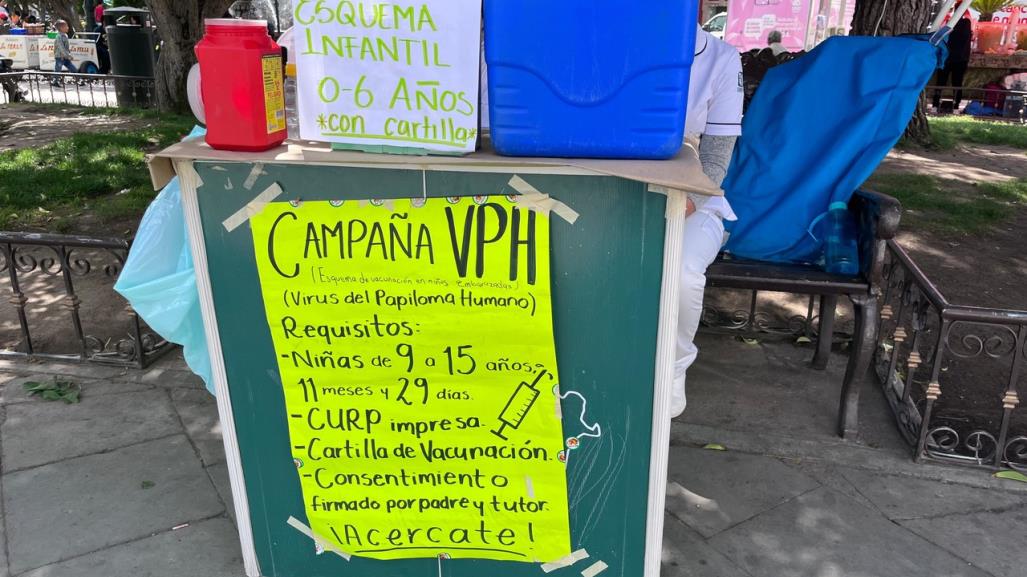 ESQUEMA
INFANTIL
0-6 AÑOS
*con cartilla*
CAMPAÑA VPH
(Esquema de vacunación en niños embarazadas)
(Virus del Papiloma Humano)
Requisitos:
-Niñas de 9 a 15 años
11 meses y 29 días.
-CURP impresa.
-Cartilla de Vacunación.
-Consentimiento
firmado por padre y tutor.
¡Acercate!